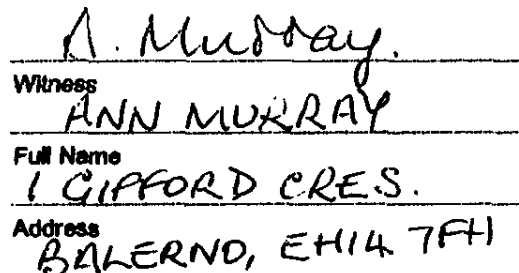 A. Murray.
Witness
ANN MURRAY
Full Name
1 GIFFORD CRES.
Address
BALERNO, EH14 7FH